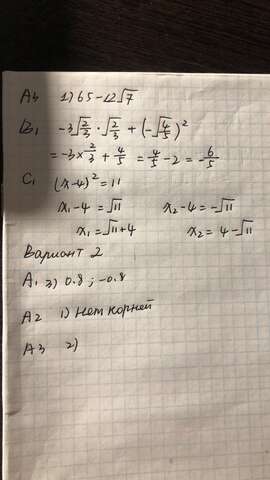 A4 1) 65-12√7
B1 -3√2/3 · √2/3 + (-√4/5)²
= -3×2/3 + 4/5 = 4/5 - 2 = -6/5
C1 (x-4)² = 11
x1-4 = √11 x2-4 = -√11
x1 = √11+4 x2 = 4-√11
Вариант 2
A1 3) 0.8 ; -0.8
A2 1) Нет корней
A3 2)